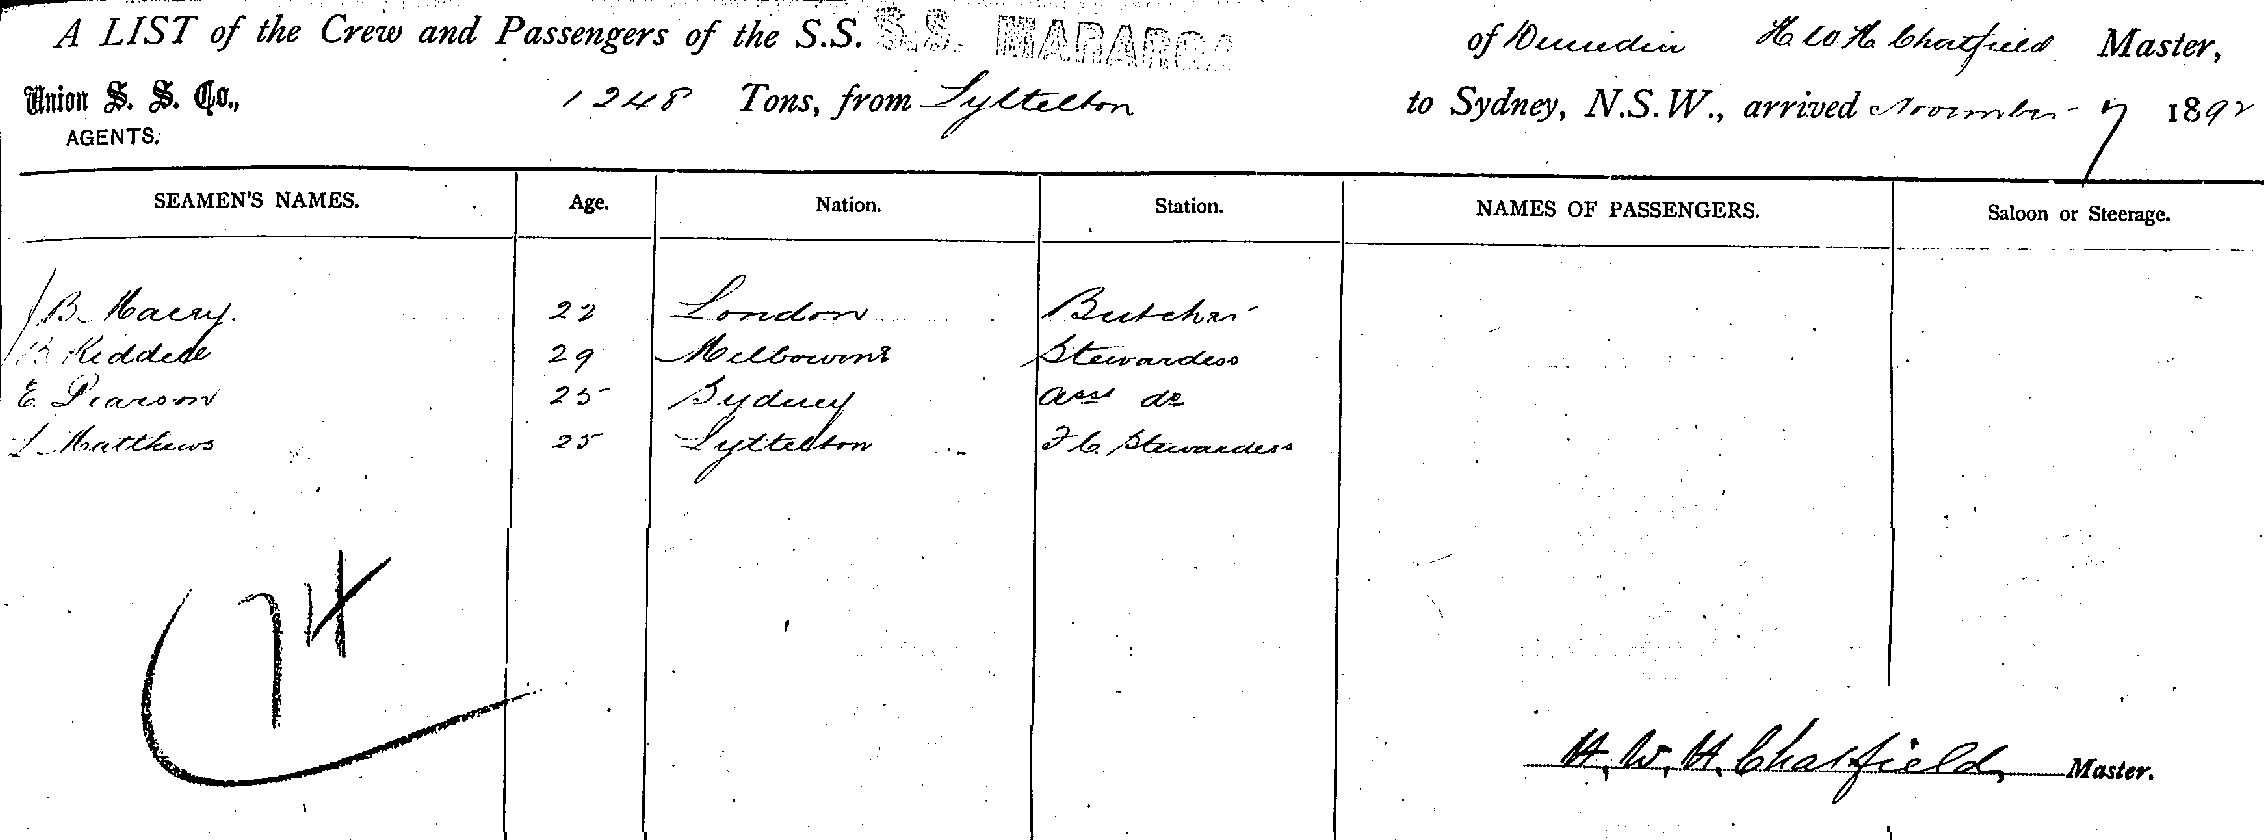 A LIST of the Crew and Passengers of the S.S. S.S. MARAROA of Dunedin H W H Chatfield Master,
Union S. S. Co., 1248 Tons, from Lyttelton to Sydney, N.S.W., arrived November 7 1892
AGENTS.
SEAMEN'S NAMES. Age. Nation. Station. NAMES OF PASSENGERS. Saloon or Steerage.
B 22 London Butcher
B Kiddell 29 Melbourne Stewardess
E. Pearson 25 Sydney Asst do
L Matthews 25 Lyttelton F C. Stewardess
74
H. W. H. Chatfield Master.